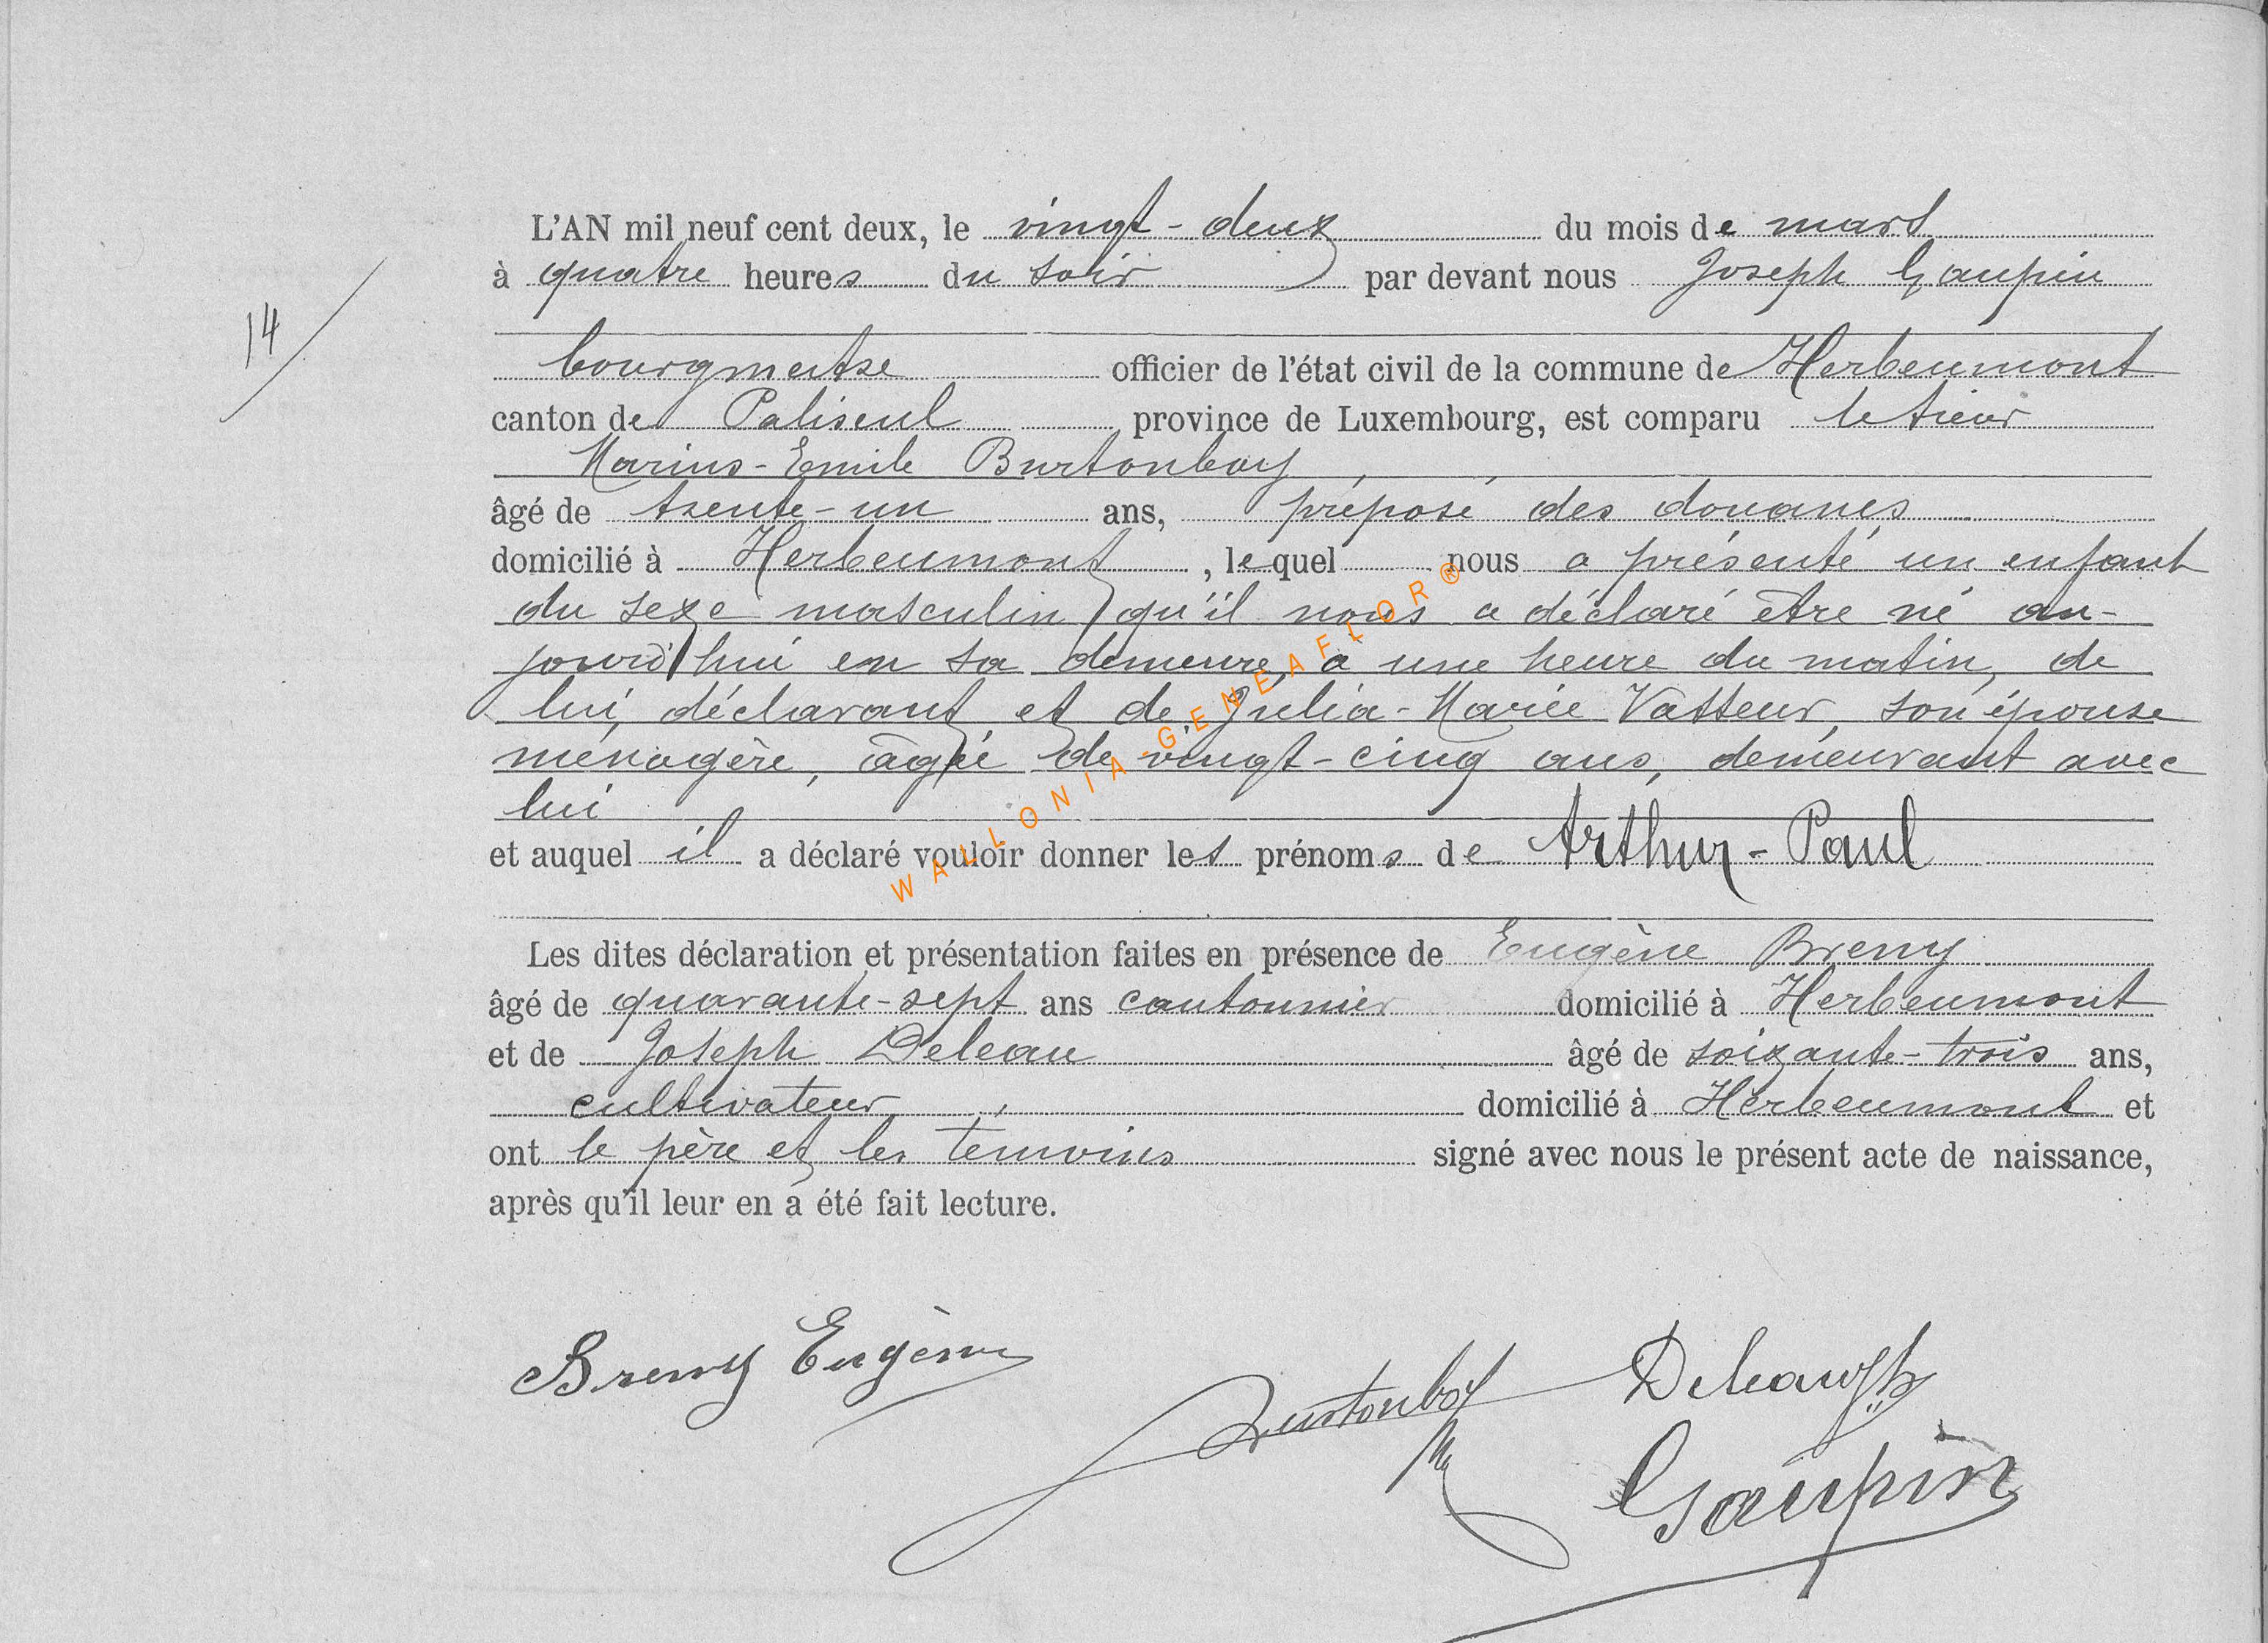 L'AN mil neuf cent deux, le vingt-deux du mois de mars
à quatre heures du soir par devant nous Joseph Gaupin
14
bourgmestre officier de l'état civil de la commune de Herbeumont
canton de Paliseul province de Luxembourg, est comparu le sieur
Marius-Emile Burtonboy,
âgé de trente-un ans, préposé des douanes
domicilié à Herbeumont, lequel nous a présenté un enfant
du sexe masculin qu'il nous a déclaré être né au-
jourd'hui en sa demeure, à une heure du matin, de
lui, déclarant et de Julia-Marie Vasseur, son épouse
ménagère, âgée de vingt-cinq ans, demeurant avec
lui
et auquel il a déclaré vouloir donner les prénoms de Arthur-Paul
Les dites déclaration et présentation faites en présence de Eugène Bremy
âgé de quarante-sept ans cantonnier domicilié à Herbeumont
et de Joseph Deleau âgé de soixante-trois ans,
cultivateur, domicilié à Herbeumont et
ont le père et les témoins signé avec nous le présent acte de naissance,
après qu'il leur en a été fait lecture.
WALLONIA-GENEAFLOR®
Bremy Eugène
Burtonboy M
Deleau Jh
Gaupin